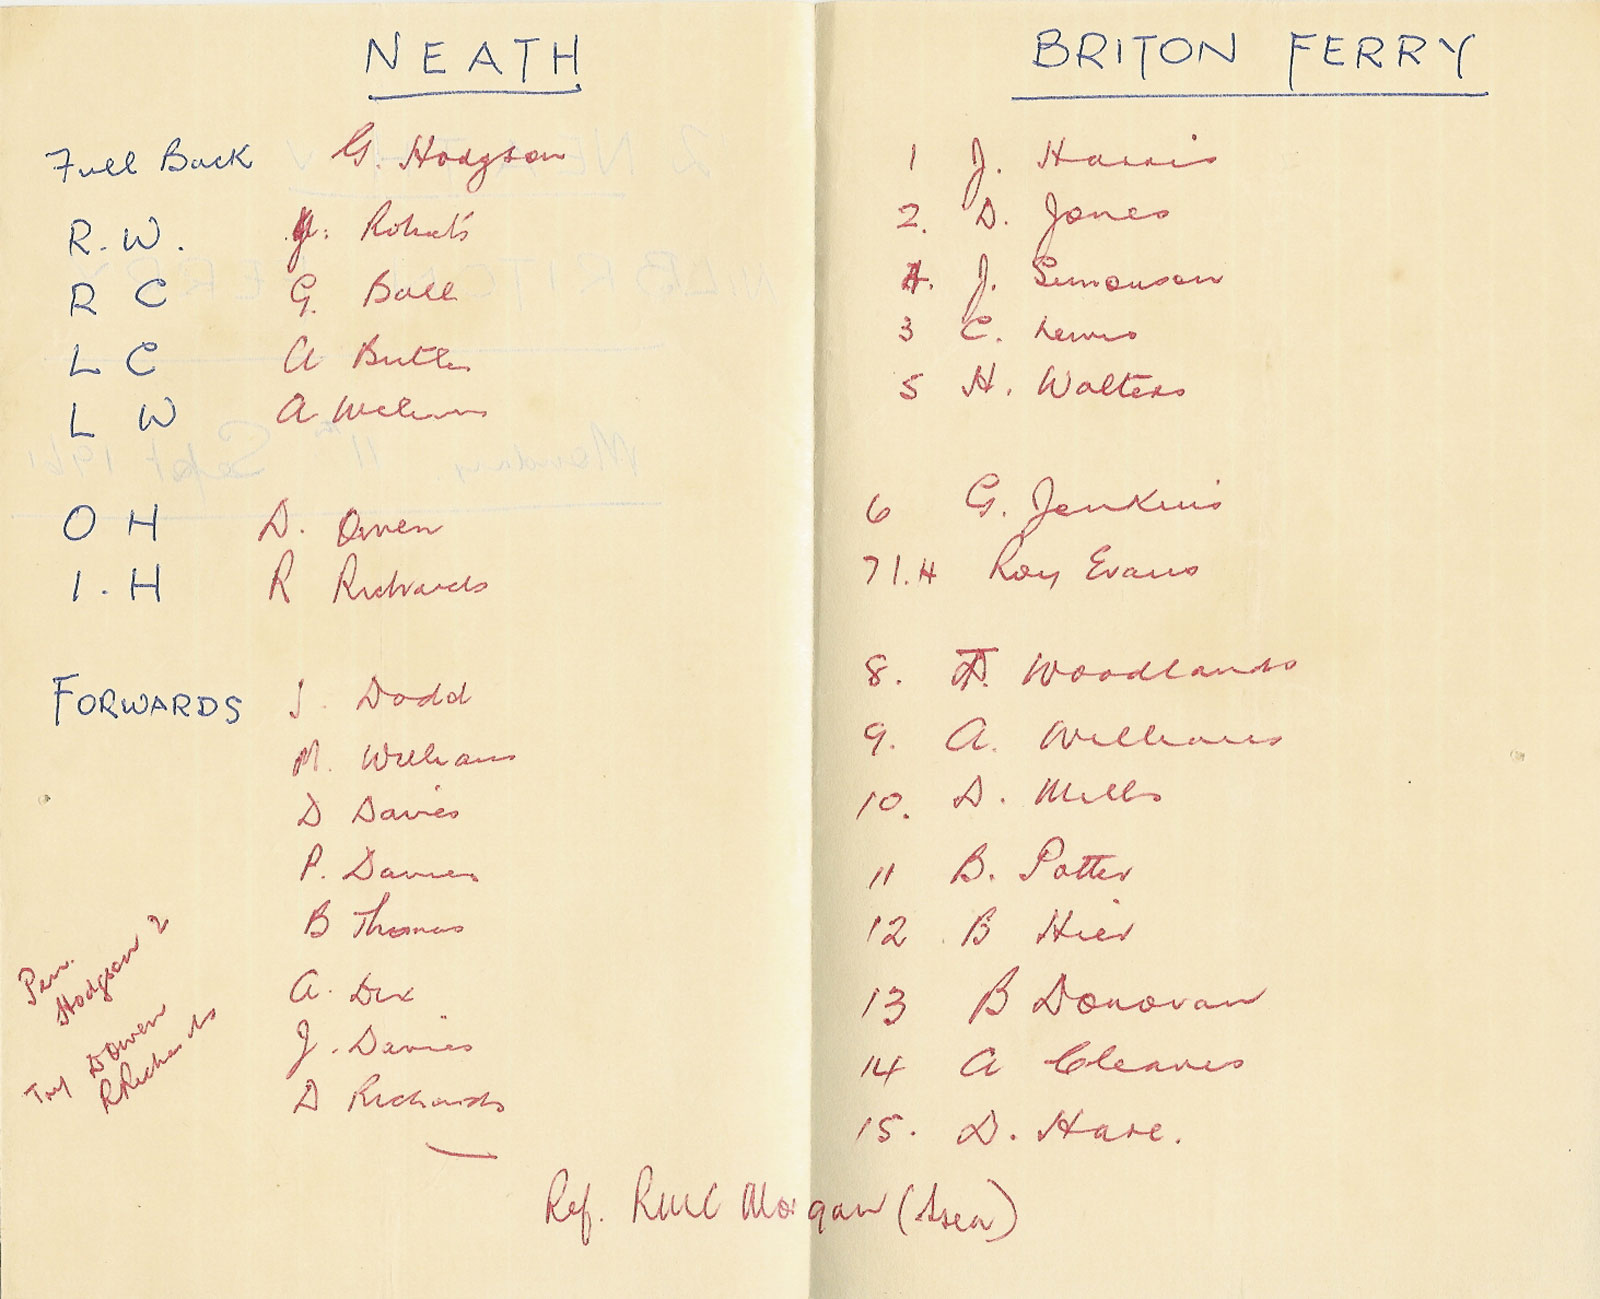 NEATH
Full Back G. Hodgson
R. W. J. Roberts
R C G. Ball
L C A Butler
L W A Williams
O H D. Owen
I. H R Richards
FORWARDS J. Dodd
M. Williams
D Davies
P. Davies
B Thomas
A. Dix
J. Davies
D Richards
Pen.
Hodgson 2
Try D Owen
R Richards
BRITON FERRY
1 J. Harris
2. D. Jones
4. J. Simonson
3 C. Lewis
5 H. Walters
6 G. Jenkins
7 I.H Roy Evans
8. Woodlands
9. A. Williams
10. D. Mills
11 B. Potter
12 B Hier
13 B Donovan
14 A Cleaves
15. D. Hare.
Ref. Morgan
2 NEATH V
BRITON FERRY
Monday 11th Sept 1961